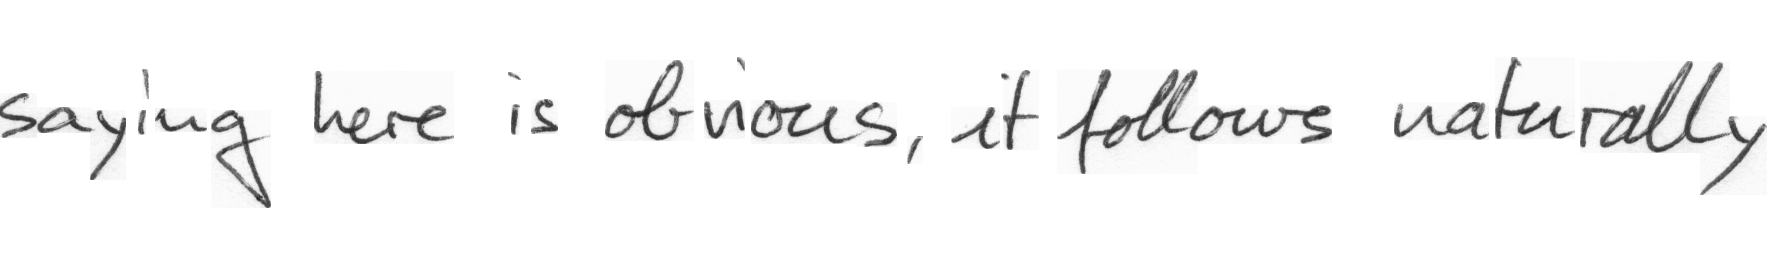 saying here is obvious, it follows naturally